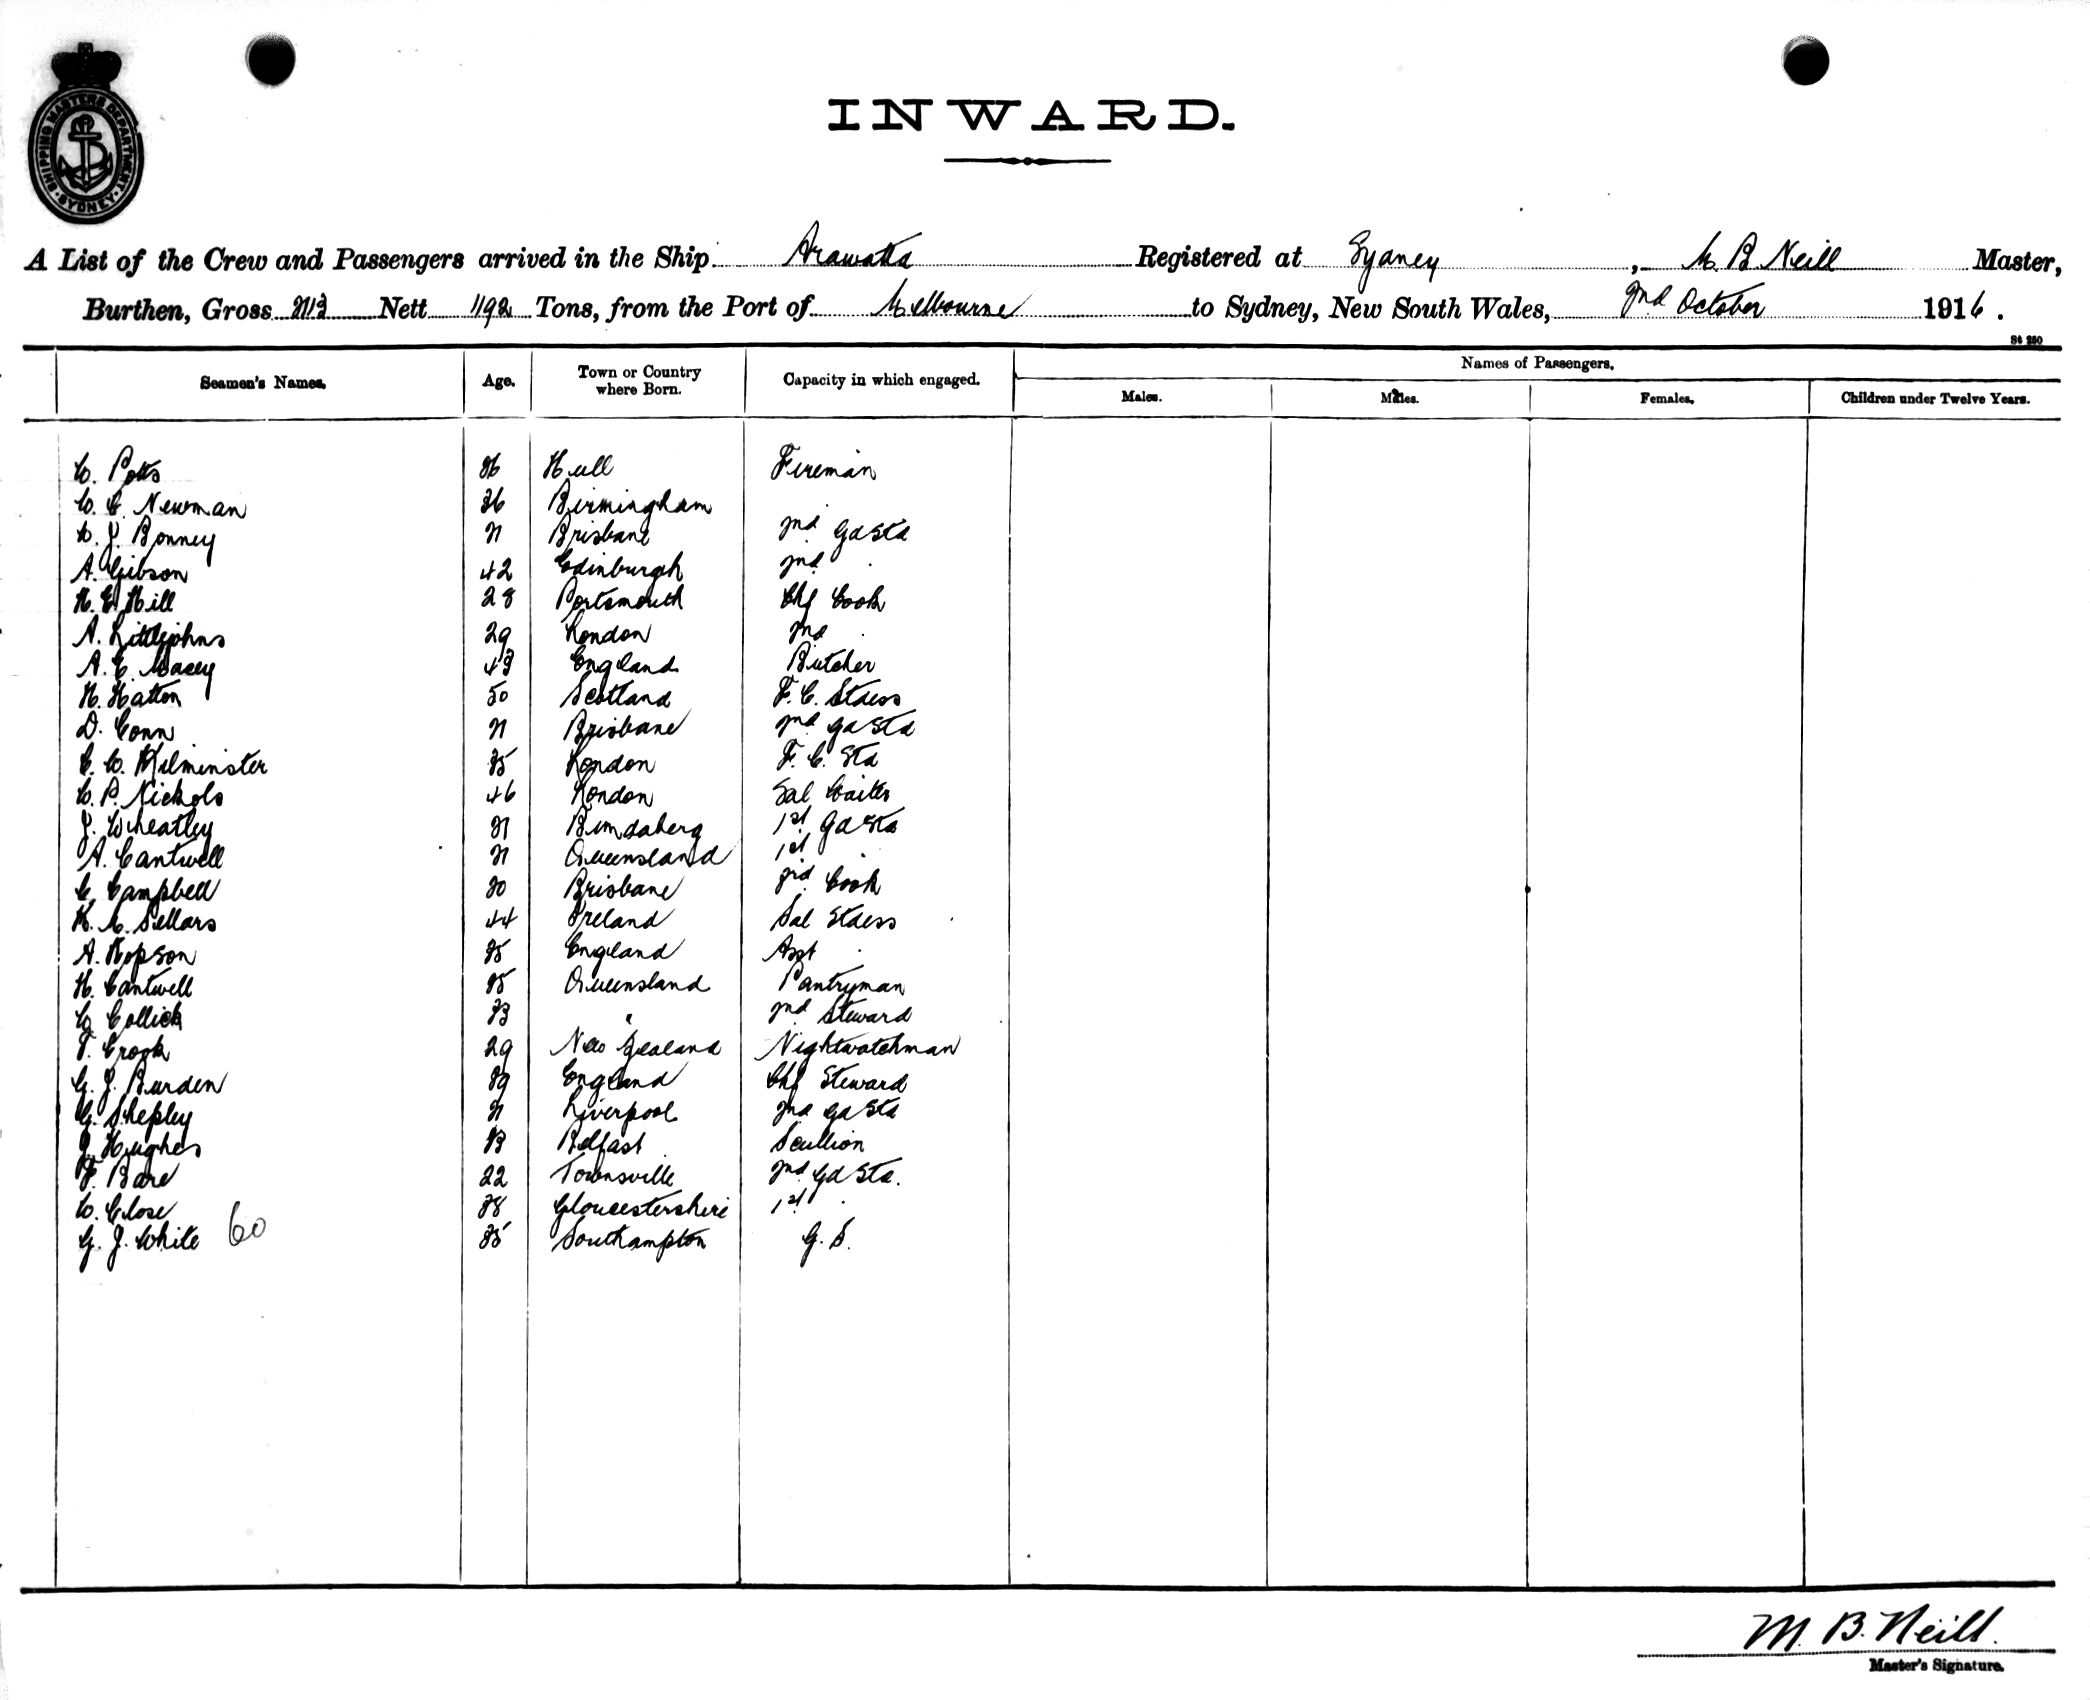 SHIPPING MASTERS DEPARTMENT
SYDNEY
INWARD.
A List of the Crew and Passengers arrived in the Ship Arawatta Registered at Sydney, M. B Neill Master,
Burthen, Gross Nett 1192 Tons, from the Port of Melbourne to Sydney, New South Wales, 2nd October 1916.
St 250
Seamen's Names. Age. Town or Country where Born. Capacity in which engaged. Names of Passengers.
Males. Males. Females. Children under Twelve Years.
W. Potts 36 Hull Fireman
W. C. Newman 36 Birmingham
J. Bonney 21 Brisbane 2nd Gd Std
A. Gibson 42 Edinburgh 2nd .
H. E. Hill 28 Portsmouth Chf Cook
A. Littlejohns 29 London 2nd .
A. E. Macey 43 England Butcher
H. Hatton 50 Scotland F. C. Stdess
D. Conn 21 Brisbane 2nd Gd Std
C. W. Kilminster 35 London F. C. Std
W. P. Nichols 46 London Sal Waiter
J. Wheatley 21 Bundaberg 1st Gd Std
A. Cantwell 21 Queensland 1st .
C. Campbell 30 Brisbane 3rd Cook
K. M. Sellars 44 Ireland Sal Stdess
A. Hopson 35 England Asst .
H. Cantwell 35 Queensland Pantryman
W. Collick 33 " 2nd Steward
T. Crook 29 New Zealand Nightwatchman
G. J. Burden 39 England Chf Steward
G. Shepley 21 Liverpool 2nd Gd Std
J. Hughes Belfast Scullion
F. Bare 22 Townsville 2nd Gd Std.
W. Close 38 Gloucestershire 1st .
G. J. White 60 35 Southampton G. S.
M. B. Neill.
Master's Signature.